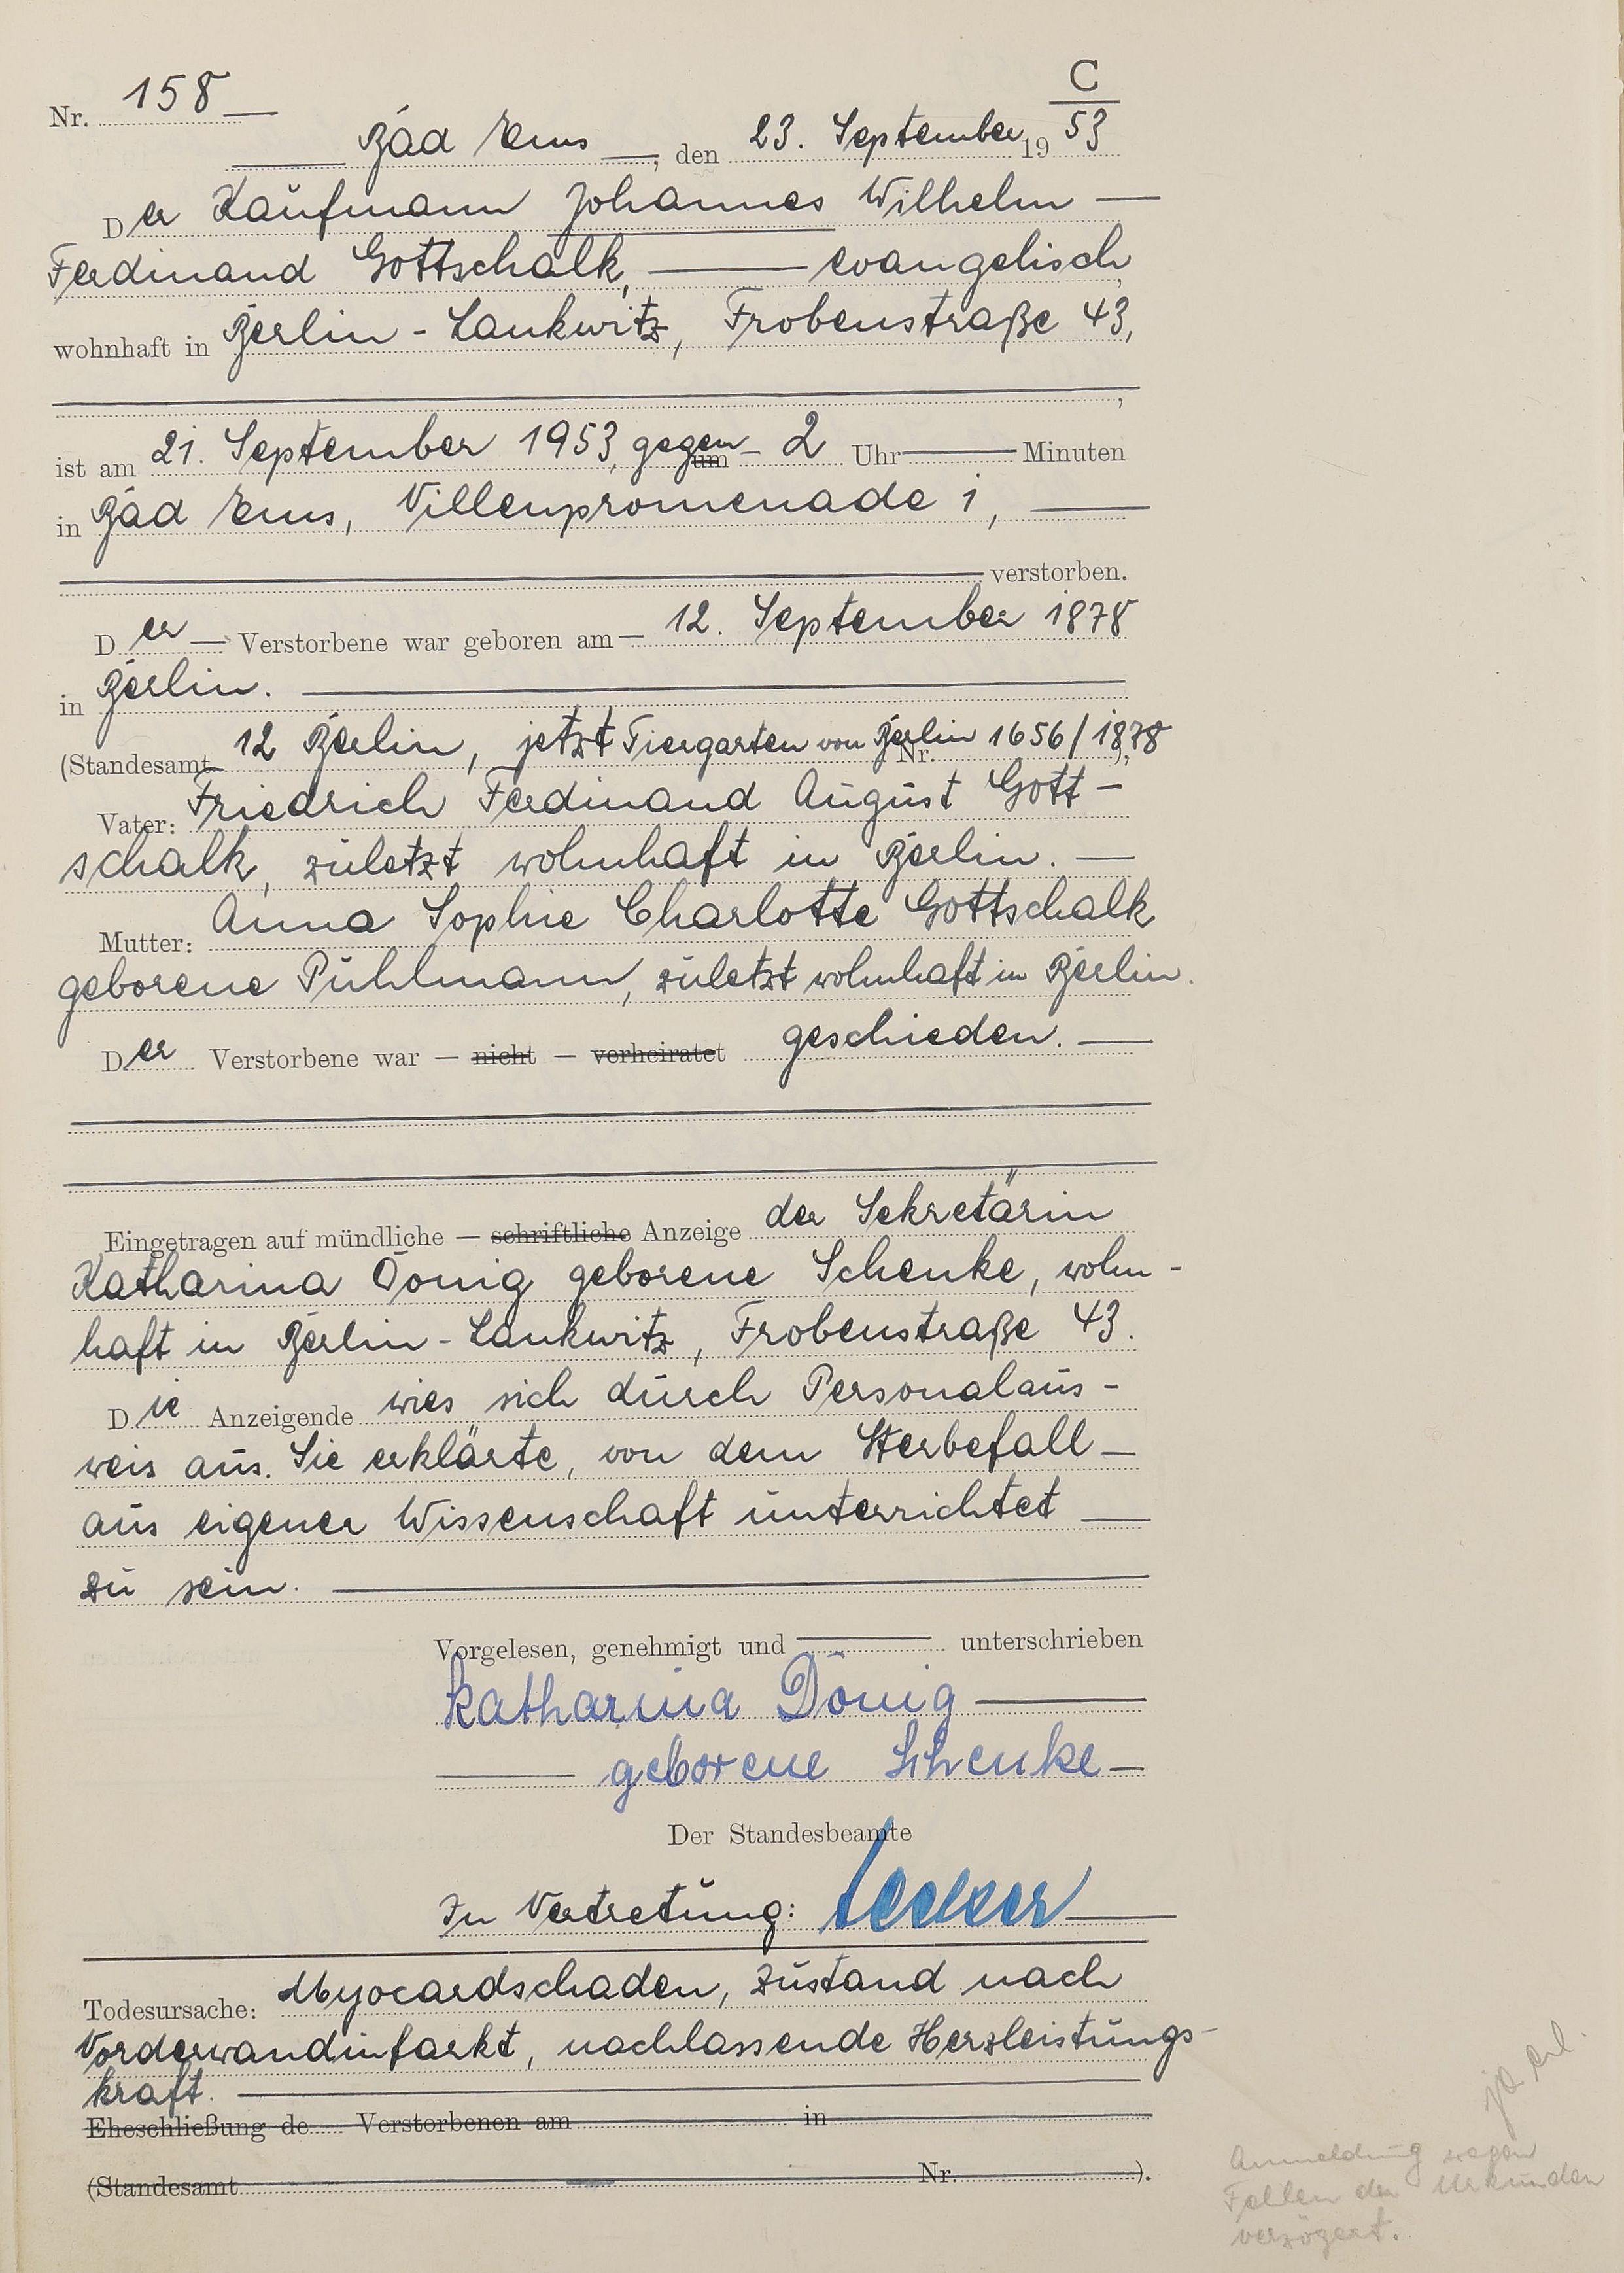 C
Nr. 158
Bad Ems, den 23. September 1953
Der Kaufmann Johannes Wilhelm
Ferdinand Gottschalk, evangelisch
wohnhaft in Berlin-Lankwitz, Frobenstraße 43,
,
ist am 21. September 1953, gegen um 2 Uhr Minuten
in Bad Ems, Villenpromenade 1,
verstorben.
Der Verstorbene war geboren am 12. September 1878
in Berlin.
(Standesamt 12 Berlin, jetzt Tiergarten von Berlin Nr. 1656/1878),
Vater: Friedrich Ferdinand August Gott-
schalk, zuletzt wohnhaft in Berlin.
Mutter: Anna Sophie Charlotte Gottschalk
geborene Puhlmann, zuletzt wohnhaft in Berlin.
Der Verstorbene war — nicht — verheiratet geschieden.
Eingetragen auf mündliche — schriftliche Anzeige der Sekretärin
Katharina Dönig geborene Schenke, wohn-
haft in Berlin-Lankwitz, Frobenstraße 43.
Die Anzeigende wies sich durch Personalaus-
weis aus. Sie erklärte, von dem Sterbefall
aus eigener Wissenschaft unterrichtet
zu sein.
Vorgelesen, genehmigt und unterschrieben
Katharina Dönig
geborene Schenke
Der Standesbeamte
In Vertretung:
Todesursache: Myocardschaden, Zustand nach
Vorderwandinfarkt, nachlassende Herzleistungs-
kraft.
Eheschließung de Verstorbenen am in
(Standesamt Nr. ).
Anmeldung wegen
Fehlen der Urkunden
verzögert.